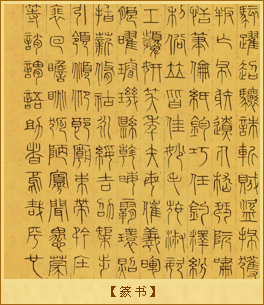 駭躍超驤誅斬賊盜捕獲
叛亡布射遼丸嵇琴阮嘯
恬筆倫紙鈞巧任釣釋紛
利俗並皆佳妙毛施淑姿
工顰妍笑年矢每催羲暉
朗曜璇璣懸斡晦魄環照
指薪修祜永綏吉劭矩步
引領俯仰廊廟束帶矜莊
徘徊瞻眺孤陋寡聞愚蒙
等誚謂語助者焉哉乎也
【篆书】